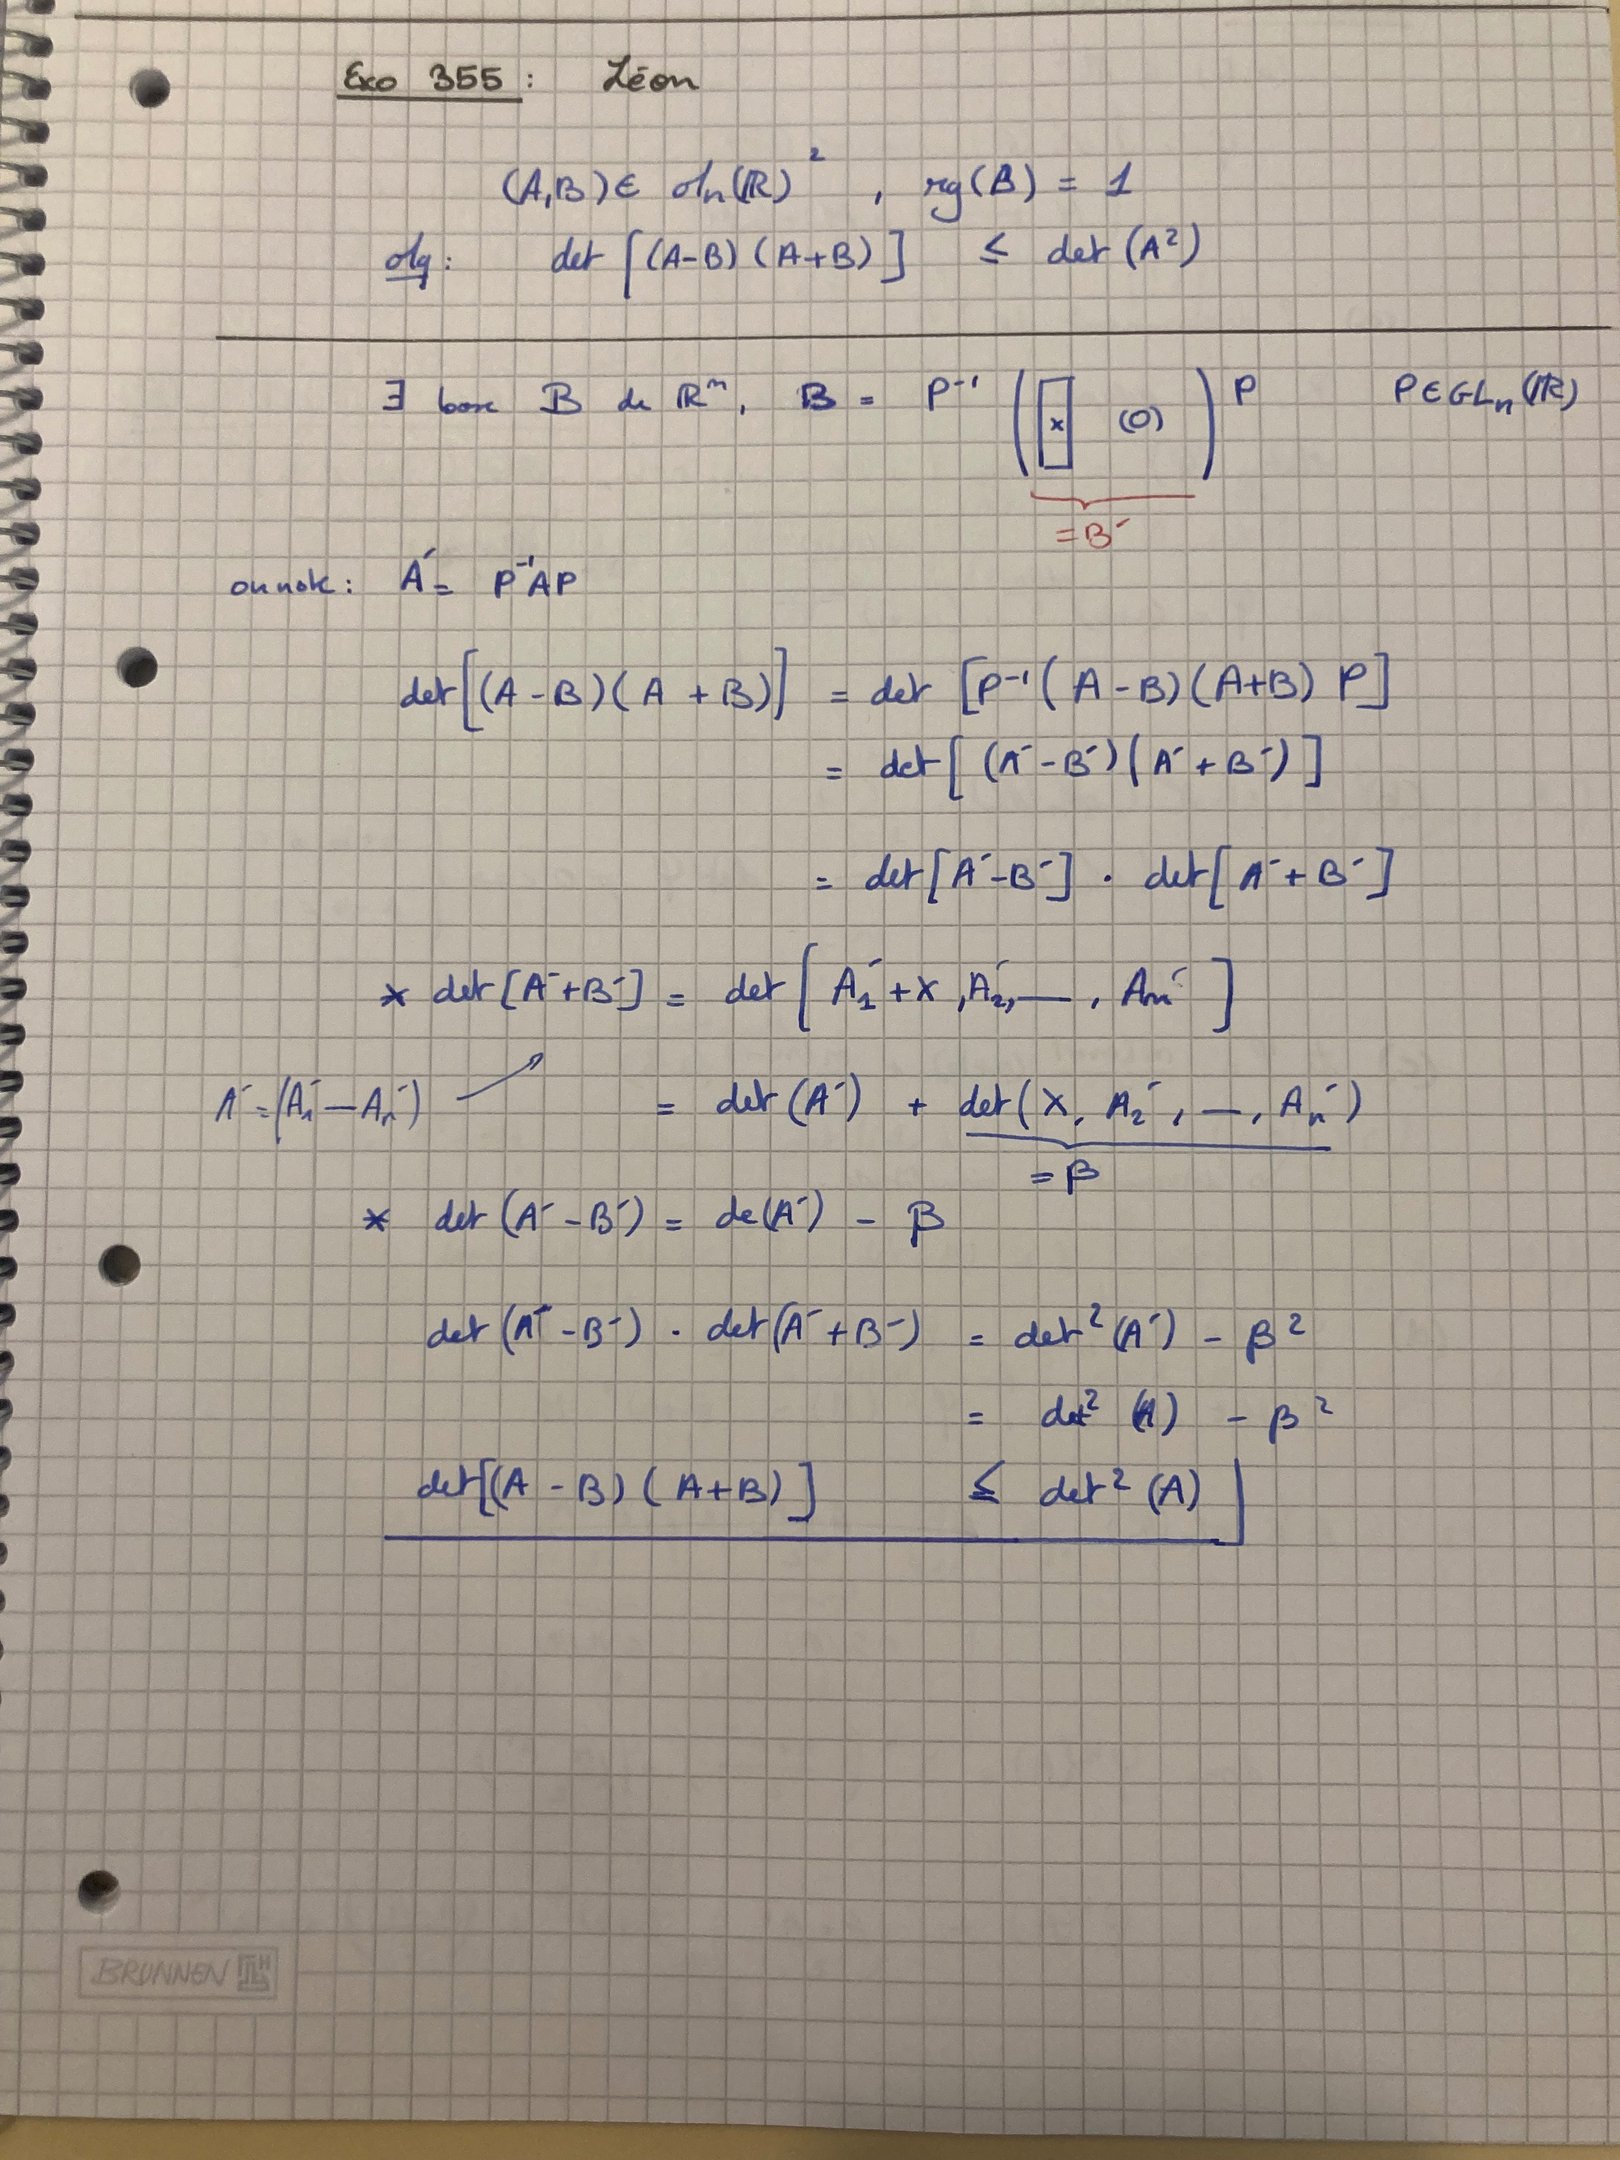 Exo 355 : Léon
(A,B) ∈ ℳn(ℝ)² , rg(B) = 1
Mq : det [(A-B)(A+B)] ≤ det (A²)
∃ base B de ℝⁿ, B = P⁻¹ ( x (0) ) P P∈GLn(ℝ)
= B'
on note : A' = P⁻¹AP
det[(A-B)(A+B)] = det [P⁻¹(A-B)(A+B) P]
= det[(A'-B')(A'+B')]
= det[A'-B'] · det[A'+B']
* det[A'+B'] = det [A₁'+X, A₂', —, An']
A' = (A₁' — An') = det (A') + det(X, A₂', —, An')
= β
* det (A'-B') = de(A') - β
det (A'-B') · det(A'+B') = det²(A') - β²
= det² (A) - β²
det[(A-B)(A+B)] ≤ det² (A)
BRUNNEN